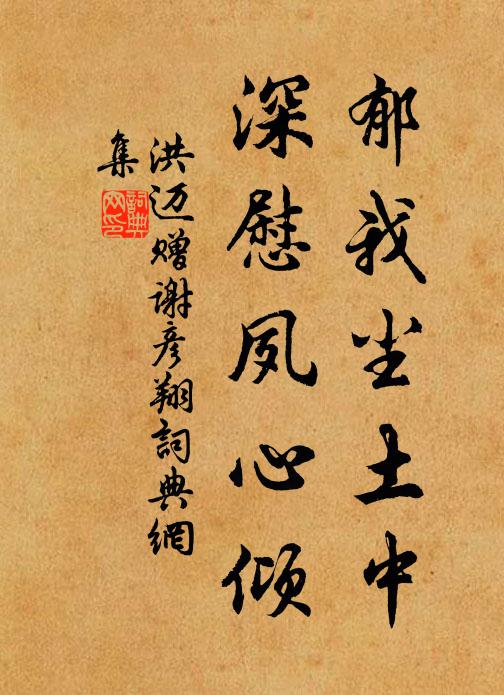 郁我尘土中
深慰夙心倾
洪迈赠谢彦翔詞典網
集
詞典網印